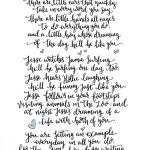 There are little ears that quickly
take in every word you say
there are little hands all eager
to do everything you do
and a little boy who's dreaming
of the day he'll be like you.
Jesse watches James surfing
he'll be surfing one day too
Jesse hears Hollie laughing
he'll be funny just like you
Jesse follows in your footsteps
visiting animals in the zoo and
at night Jesse's dreaming of a
life with both of you
You are setting an example
everyday in all you do
for the